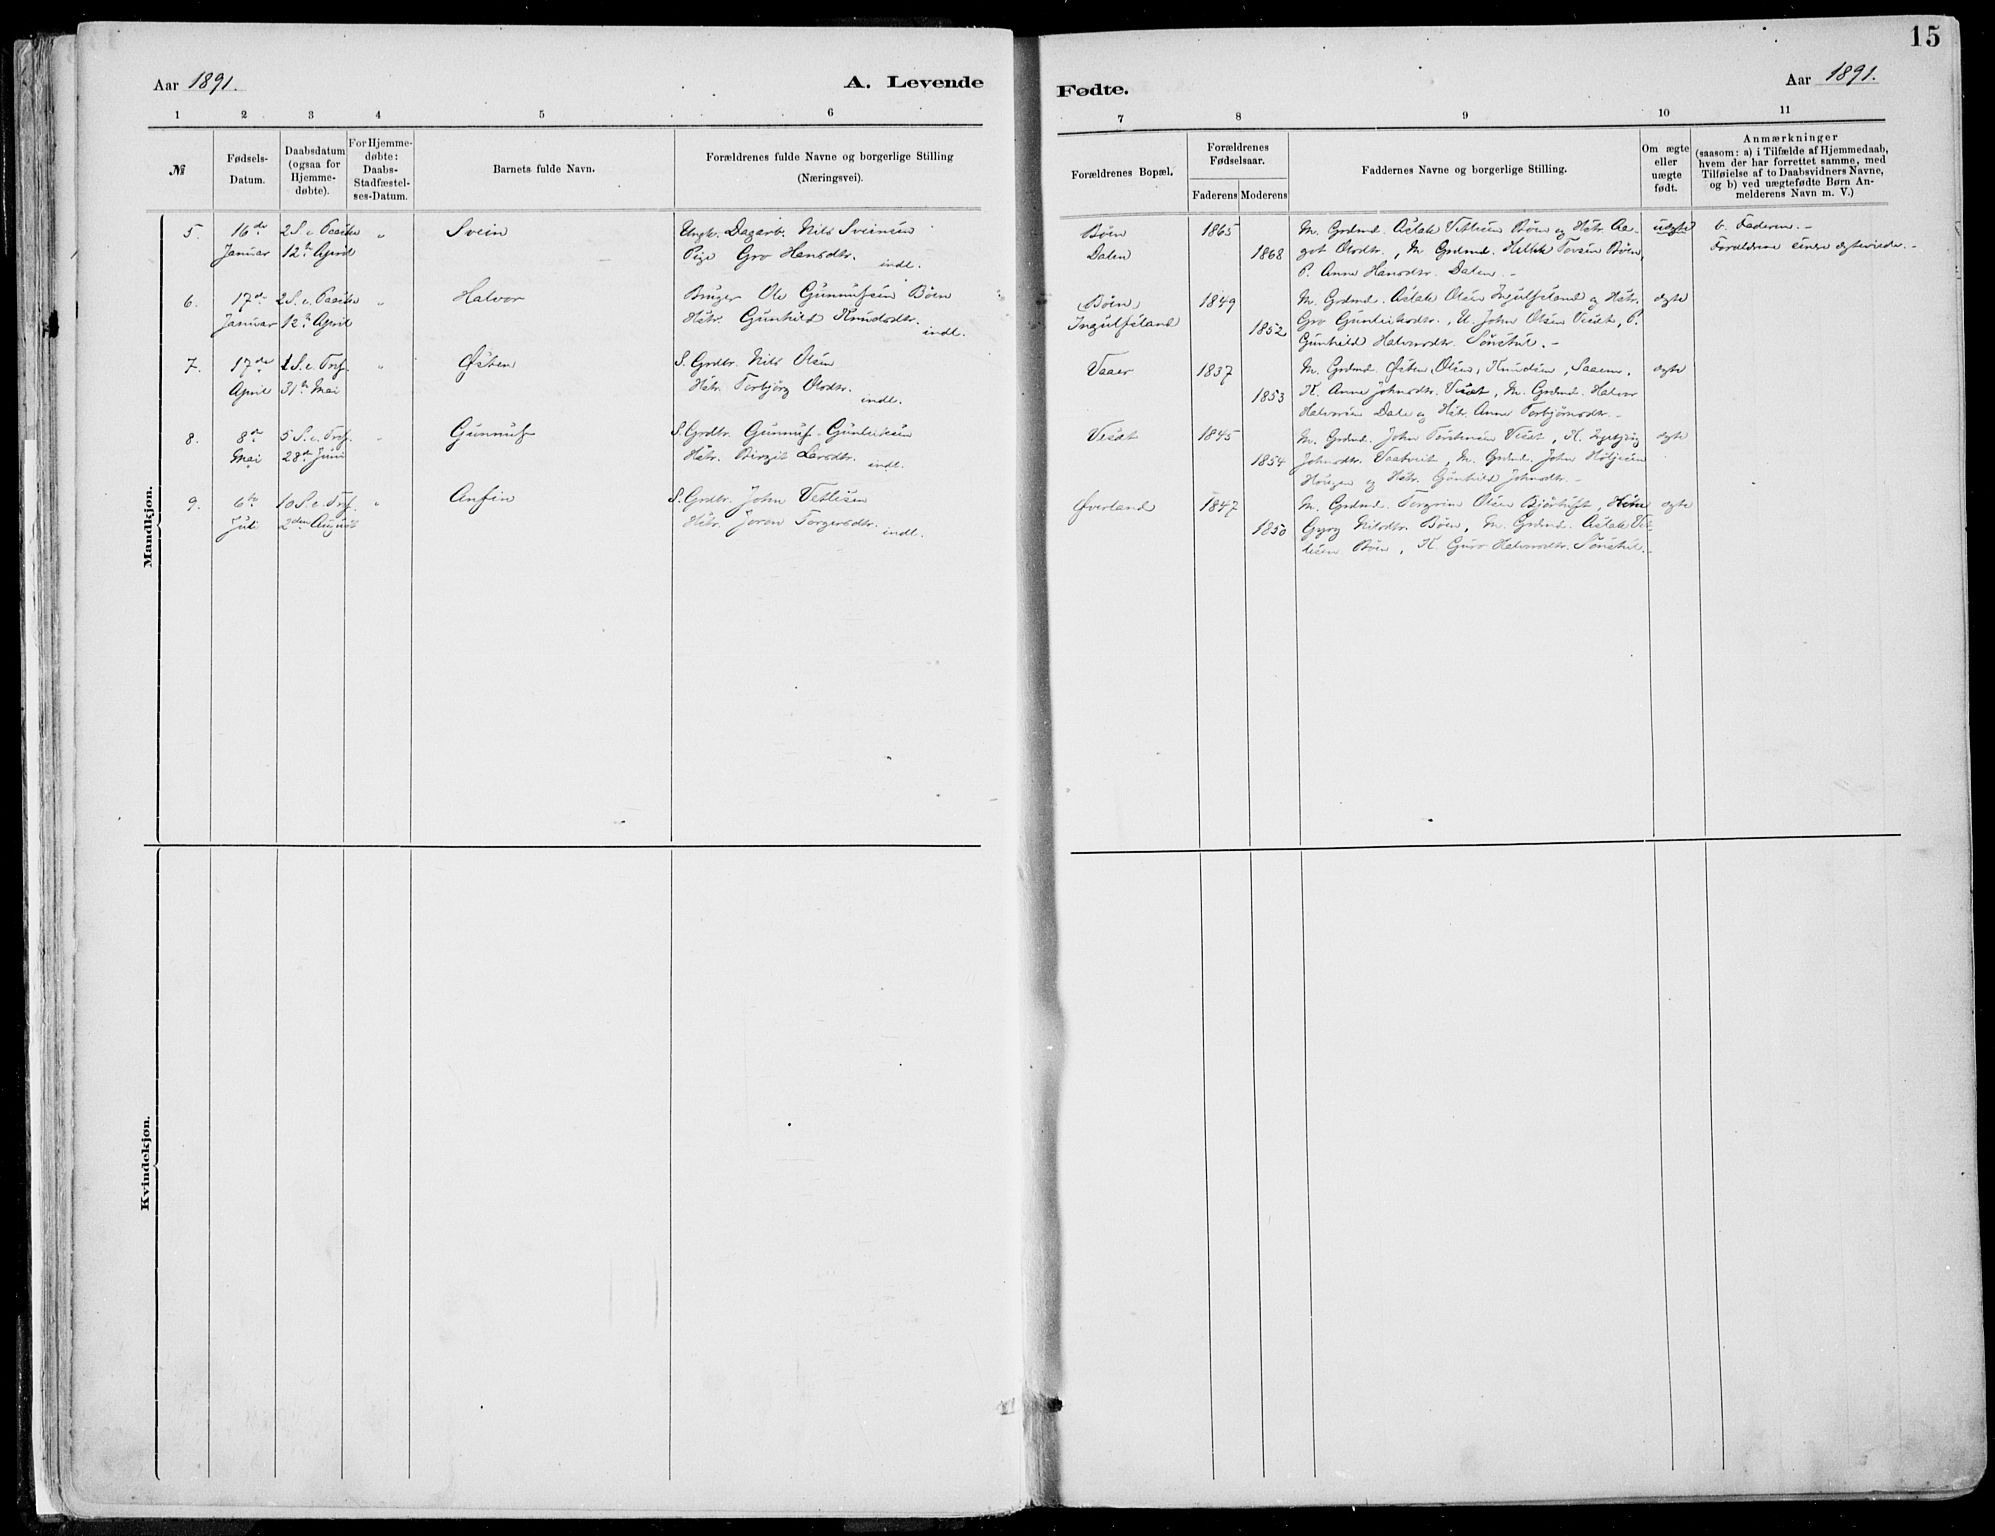 15
Aar 1891.
A. Levende
Fødte.
Aar 1891.
1 2 3 4 5 6
7 8 9 10 11
№
Fødsels-
Datum.
Daabsdatum
(ogsaa for
Hjemme-
døbte).
For Hjemme-
døbte:
Daabs-
Stadfæstel-
ses-Datum.
Barnets fulde Navn.
Forældrenes fulde Navne og borgerlige Stilling
(Næringsvei).
Forældrenes Bopæl.
Forældrenes
Fødselsaar.
Faderens Moderens
Faddernes Navne og borgerlige Stilling.
Om ægte
eller
uægte
født.
Anmærkninger
(saasom: a) i Tilfælde af Hjemmedaab,
hvem der har forrettet samme, med
Tilføielse af to Daabsvidners Navne,
og b) ved uægtefødte Børn An-
melderens Navn m. V.)
Mandkjøn.
5. 16de 2 S. e. Paaske „ Svein Ungk. Dagarb. Nils Sveinsen
Januar 12te April Pige Gro Hansdtr. indl.
Bøen 1865 M. Grdmd. Aslak Vetlesen Bøen og Hstr. Aa- uægte b. Faderen.-
Dalen 1868 got Olsdtr., M. Grdmd. Torsen Bøen, Forældrene
P. Anne Hansdtr. Dalen.-
6. 17de 2 S. e. Paaske „ Halvor Bruger Ole Gunnufsen Bøen
Januar 12te April Hstr. Gunhild Knudsdtr. indl.
Bøen, 1849 M. Grdmd. Aslak Olsen Ingulfsland og Hstr. ægte
Ingulfsland 1852 Gro Gunleiksdtr., U. John Olsen Vesæt, P.
Gunhild Halvorsdtr. Sønstul.-
7. 17de 1 S. e. Tref. „ Østen S. Grdbr. Nils Olsen
April 31te Mai Hstr. Torbjørg Olsdtr. indl.
Vaaer 1837 M. Grdmd. Østen Olsen, Knudsen, Saaem, ægte
1853 K. Anne Johnsdtr. Vesæt, M. Grdmd. Halvor
Halvorsen Dale og Hstr. Anne Torbjørnsdtr.-
8. 8de 5 S. e. Tref. „ Gunnuf S. Grdbr. Gunnuf Gunleiksen
Mai 28de Juni Hstr. Birgit Larsdtr. indl.
Vesæt 1845 M. Grdmd. John Torstensen Vesæt, K. Ingebjørg ægte
1854 Johnsdtr. Vaatveit, M. Grdmd. John Høljesen
Haugen og Hstr. Gunhild Johnsdtr.-
9. 6te 10 S. e. Tref. „ Anfin S. Grdbr. John Vetlesen
Juli 2den August Hstr. Joron Torgersdtr. indl.
Øverland 1847 M. Grdmd. Torgrim Olsen Bjørtuft, ægte
1850 Gyro Nilsdtr. Bøen, M. Grdmd. Aslak Vet-
lesen Bøen, K. Guro Halvorsdtr. Sønstul.-
Kvindekjøn.